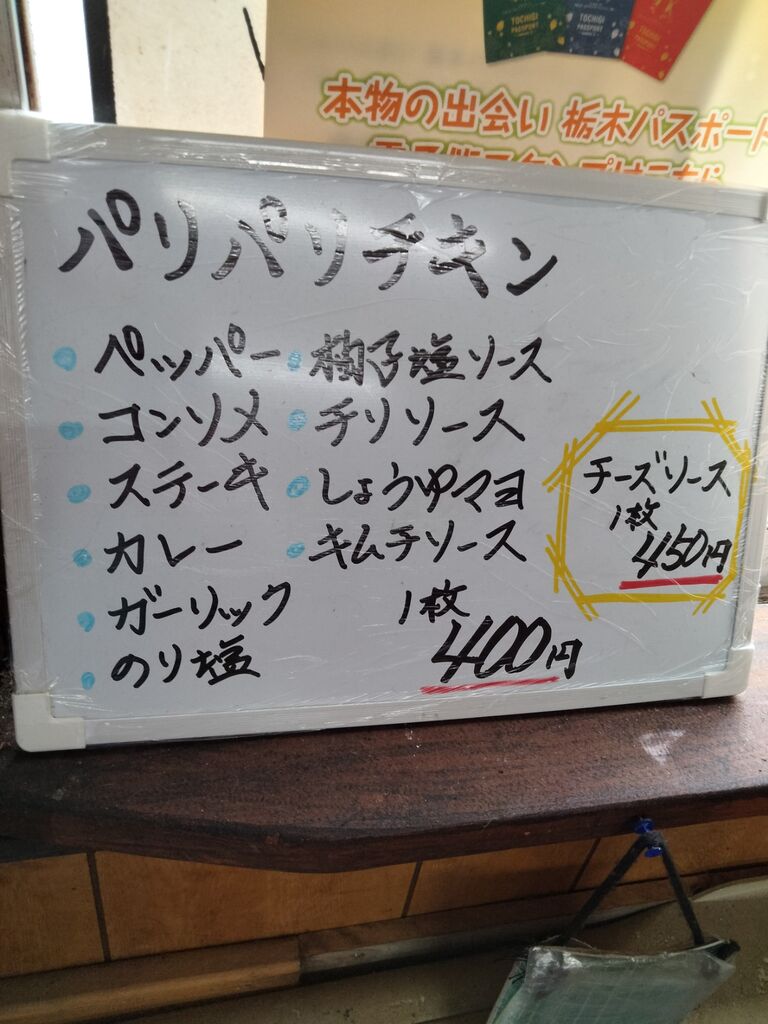 TOCHIGI PASSPORT
TOCHIGI PASSPORT
TOCHIGI PASSPORT
本物の出会い 栃木パスポート
パリパリチキン
・ペッパー
・コンソメ
・ステーキ
・カレー
・ガーリック
・のり塩
・柚子塩ソース
・チリソース
・しょうゆマヨ
・キムチソース
1枚
400円
チーズソース
1枚
450円